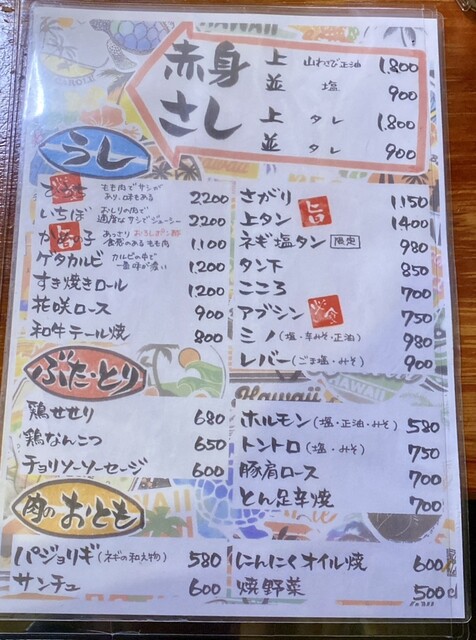 赤身さし
上 山わさび正油 1,800
並 塩 900
上 タレ 1,800
並 タレ 900
うし
もも肉でサシがあり、味もある 2200
いちぼ おしりの肉で適度なサシでジューシー 2200
かぶの子 あっさり 食感のあるもも肉 1,100
ゲタカルビ カルビの中で一番味が濃い 1,200
すき焼きロール 1,200
花咲ロース 900
和牛テール焼 800
さがり 旨 1,150
上タン 1400
ネギ塩タン 限定 980
タン下 850
こころ 700
アブシン 750
ミノ(塩・辛みそ・正油) 980
レバー(ごま塩・みそ) 900
ぶた・とり
鶏せせり 680
鶏なんこつ 650
チョリソーソーセージ 600
ホルモン(塩・正油・みそ) 580
トントロ(塩・みそ) 750
豚肩ロース 700
とん足辛焼 700
肉のおとも
パジョリギ(ネギの和え物) 580
サンチュ 600
にんにくオイル焼 600
焼野菜 500